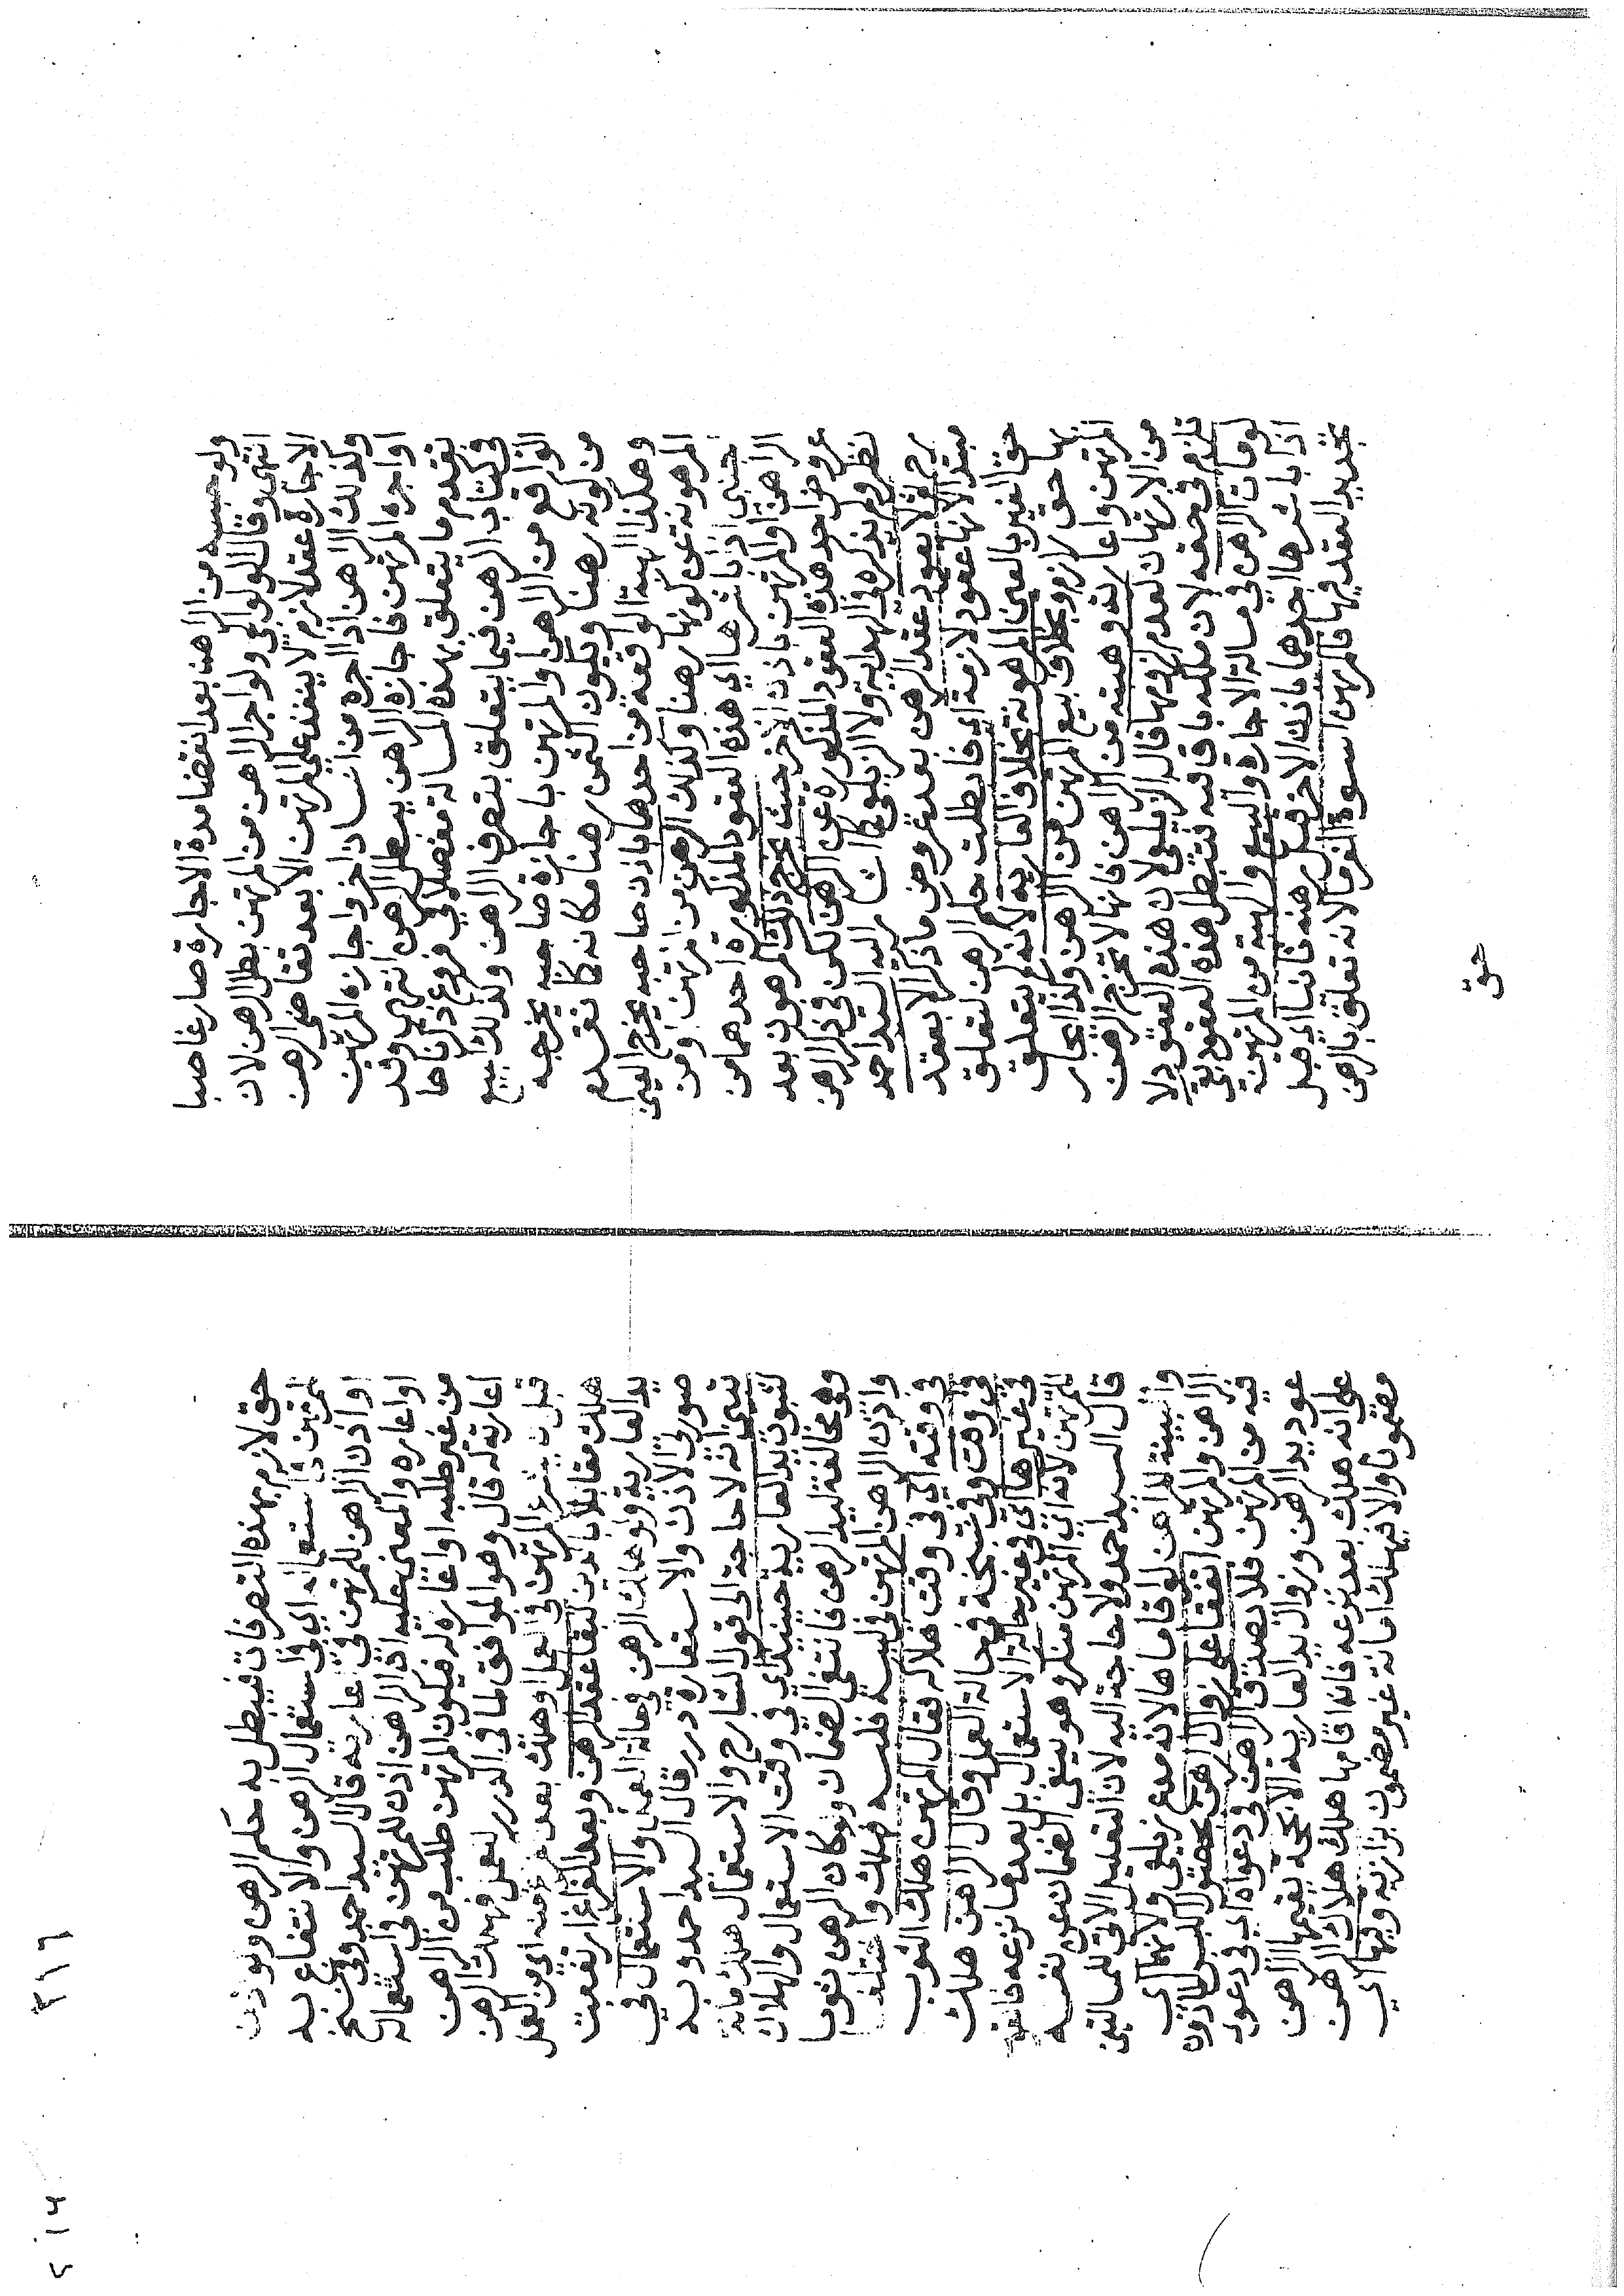 ولو حبسه من الراهن بعد انقضا مدة الاجارة صار غاصبا
انتهى وقال الولوالجي ولو اجر الراهن من المرتهن بطل الرهن لان
الاجارة عقد لازم لا ينفذ على المرتهن الا بعد تقاضي الرهن
وكذلك الراهن اذا اجره من انسان اخر واجازه المرتهن
او اجره المرتهن فاجازه الراهن يبطل الرهن انتهى وقد
تقدم ما يتعلق بهذه المسالة مفصلا في فروع ذكرناها
في كتاب الرهن فيما يتعلق بتصرف الراهن وكذلك البيع
الواقع من الراهن والمرتهن باجازة صاحبه يخرجه
من كونه رهنا ويكون الثمن رهنا مكانه كما تقدم
وهكذا الهبة الواقعة من احدهما باذن صاحبه يخرج العين
المرهونة عن كونها رهنا وكذلك الرهن من المرتهن او من
اجنبي اذا باشرها اي هذه العقود المذكورة احدهما من
الراهن او المرتهن باذن الاخر حيث يخرج ذلك المرهون بعد
عروض احد هذه العقود المذكوره عن الرهن لكن في ذكر الرهن
نظر ولم يذكره في الهداية ولا الزيلعي اليه السيد احمد
رح ثم لا يعود عقد الرهن بعد عروض ما ذكر الا بعقد
مبتدا لانها عقود لازمة اي فابطلت حكم الرهن لتعلق
حق الغير بالعين المرهونة بخلاف العارية لانه لم يتعلق
بها حق لازم وبخلاف بيع المرتهن من الراهن وكذا ايجار
المرتهن واعارته وهبته من الراهن فانها لا تخرج الرهن
من الارتهان لعدم لزومها قال الزيلعي لان هذه العقود لا
تلزم في حقه لان ملكه باق فيه فتبطل هذه العقود بقي
لو مات الراهن في مسالة الاجارة والبيع والهبة من المرتهن
اذا باشرها احدهما باذن الاخر قبل رهنه ثانيا اي قبل
تجديد العقد فيها فالمرتهن اسوة الغرما لانه تعلق بالرهن
حق
حق لازم بهذه التصرفات فيبطل به حكم الرهن ولو اذن
المرتهن في استعماله اي في استعمال الرهن والانتفاع به
او اذن الراهن للمرتهن في عاريته قال السيد احمد وفي نسخ
او اعاره والمعنى عليه اذ الراهن اذن للمرتهن في استعماله
من غير طلبه او اعاره له فيكون المرتهن طلب من الراهن
اعارته له قال وهو الموافق لما في الدرر لعمل فهلك الرهن
قبل ان يشرع المرتهن في العمل او هلك بعد فرغ منه اي من العمل
هلك مقابلا بالدين لبقا عقد الرهن وبعد الفراغ ارتفعت
يد العارية ولو هلك الرهن في حالة العمل والاستعمال في
صورتي الاذن والاستعارة درر قال السيد احمد وبه
تبين انه لا حاجة الى قول الشارح والاستعمال هلك امانة
لثبوت يد العارية حينيذ اي في وقت الاستعمال والهلاك
وهي مخالفة ليد الرهن فانتفى الضمان ولو كان الرهن ثوبا
واذن الراهن المرتهن في لبسه فلبسه فهلك واختلفا
في وقته اي في وقت هلاكه فقال المرتهن هلك الثوب
في وقت وفي نسخة في حالة العمل وقال الراهن هلك
في غيرها اي في غير حالة الاستعمال بل بعدما نزعه فالقول
للمرتهن لانه اي المرتهن منكر وهو ينفي الضمان عن نفسه
قال السيد احمد ولا حاجة اليه لان التعليل الاتي للمسالتين
والبينة للراهن لو اقاماها لانه مدع زيلعي ولانهما اي
الراهن والمرتهن اتفقا على زوال الرهن بحصول اللبس الماذون
فيه من المرتهن فلا يصدق الراهن في دعواه اي في دعوى
عود يد الرهن وزوال يد العارية الا بحجة يقيمها الراهن
على انه هلك بعد نزعه فانه اقامها هلك هلاك الرهن
مضمونا والا فيهلك امانة غير مضمون بزازية وفيها اي
٣١٦